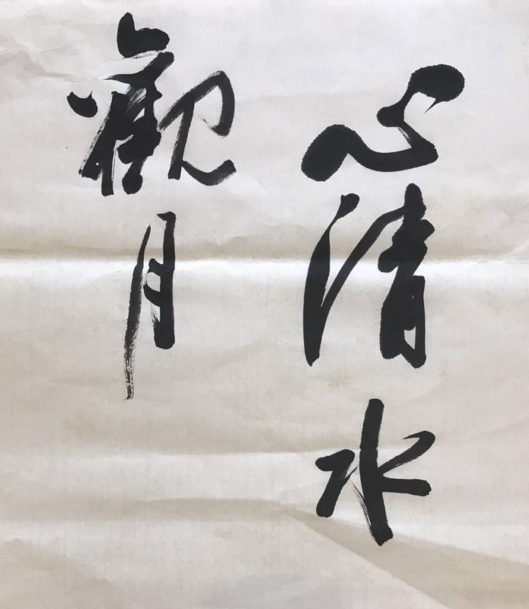 心清水
觀月